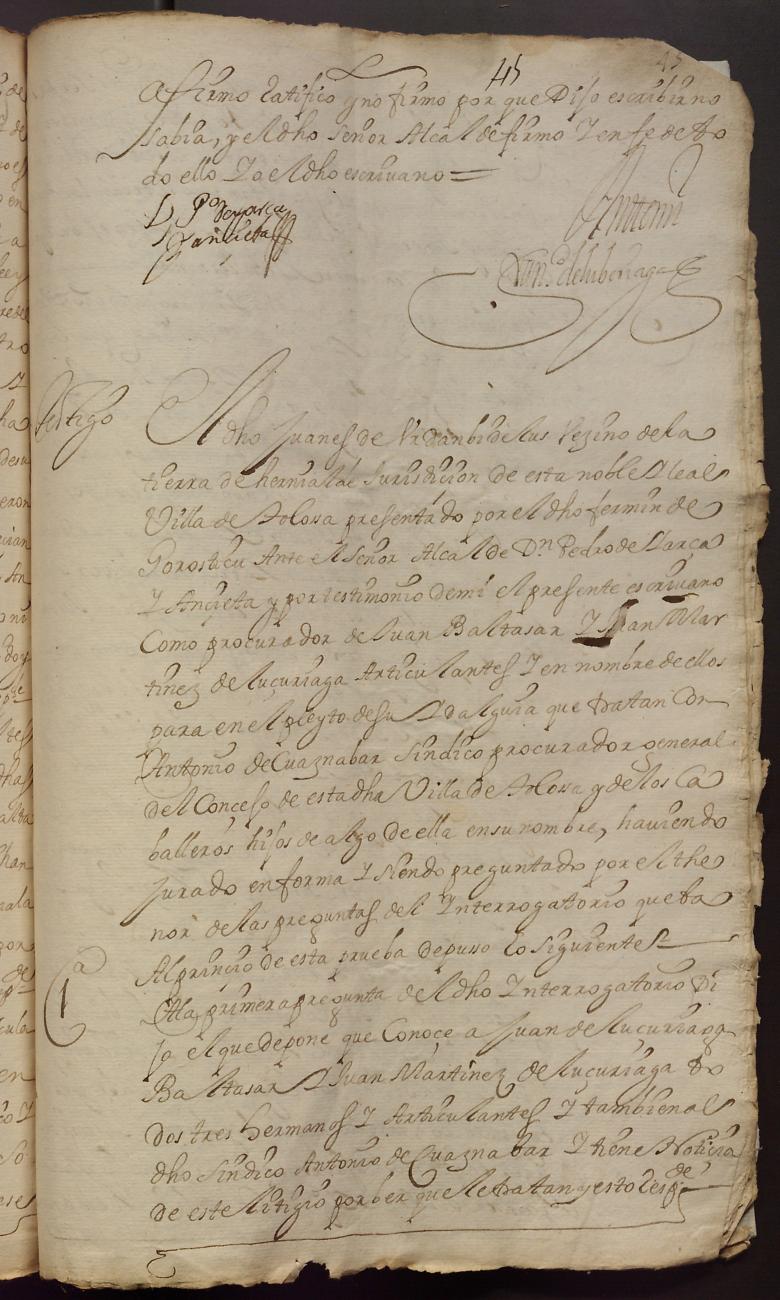 45
45
afirmo Ratifico y no firmo por que Dijo escribir no
sabia, y el dho señor Alcalde firmo Y en fe de to
do ello Yo el dho escriuano =
D Po de yarça
Y ancieta
Antteni
Franco de luberiaga
Testigo
El dho Juanes de Vrdanbidelus Vezino de la
tierra de hernialde Jurisdicion de esta noble Y leal
Villa de tolosa presentado por el dho fermin de
Gorosticu Ante el señor Alcalde Dn Pedro de Yarça
Y Ancieta y por testimonio de mi el presente escriuano
Como procurador de Juan Baltasar Y Juan Mar
tinez de lucuriaga Articulantes Y en nombre de ellos
para en el pleyto de su Ydalguia que tratan Con
Antonio de Cuaznabar Sindico procurador general
del Concejo de esta dha Villa de tolosa y de los Ca
balleros hijos de algo de ella en su nombre, hauiendo
Jurado en forma Y siendo preguntado por el the
nor de las preguntas del Interrogatorio que ba
Al princio de esta prueba depusso lo siguiente
1a
A la primera pregunta del dho Interrogatorio Di
jo el que depone que Conoce a Juan de lucuriaga
Baltasar Y Juan Martinez de lucuriaga to
dos tres hermanos Y Articulantes Y tambien al
dho Sindico Antonio de Cuaznabar Y tiene Noticia
de este litigio por ber que le tratan y esto Respde